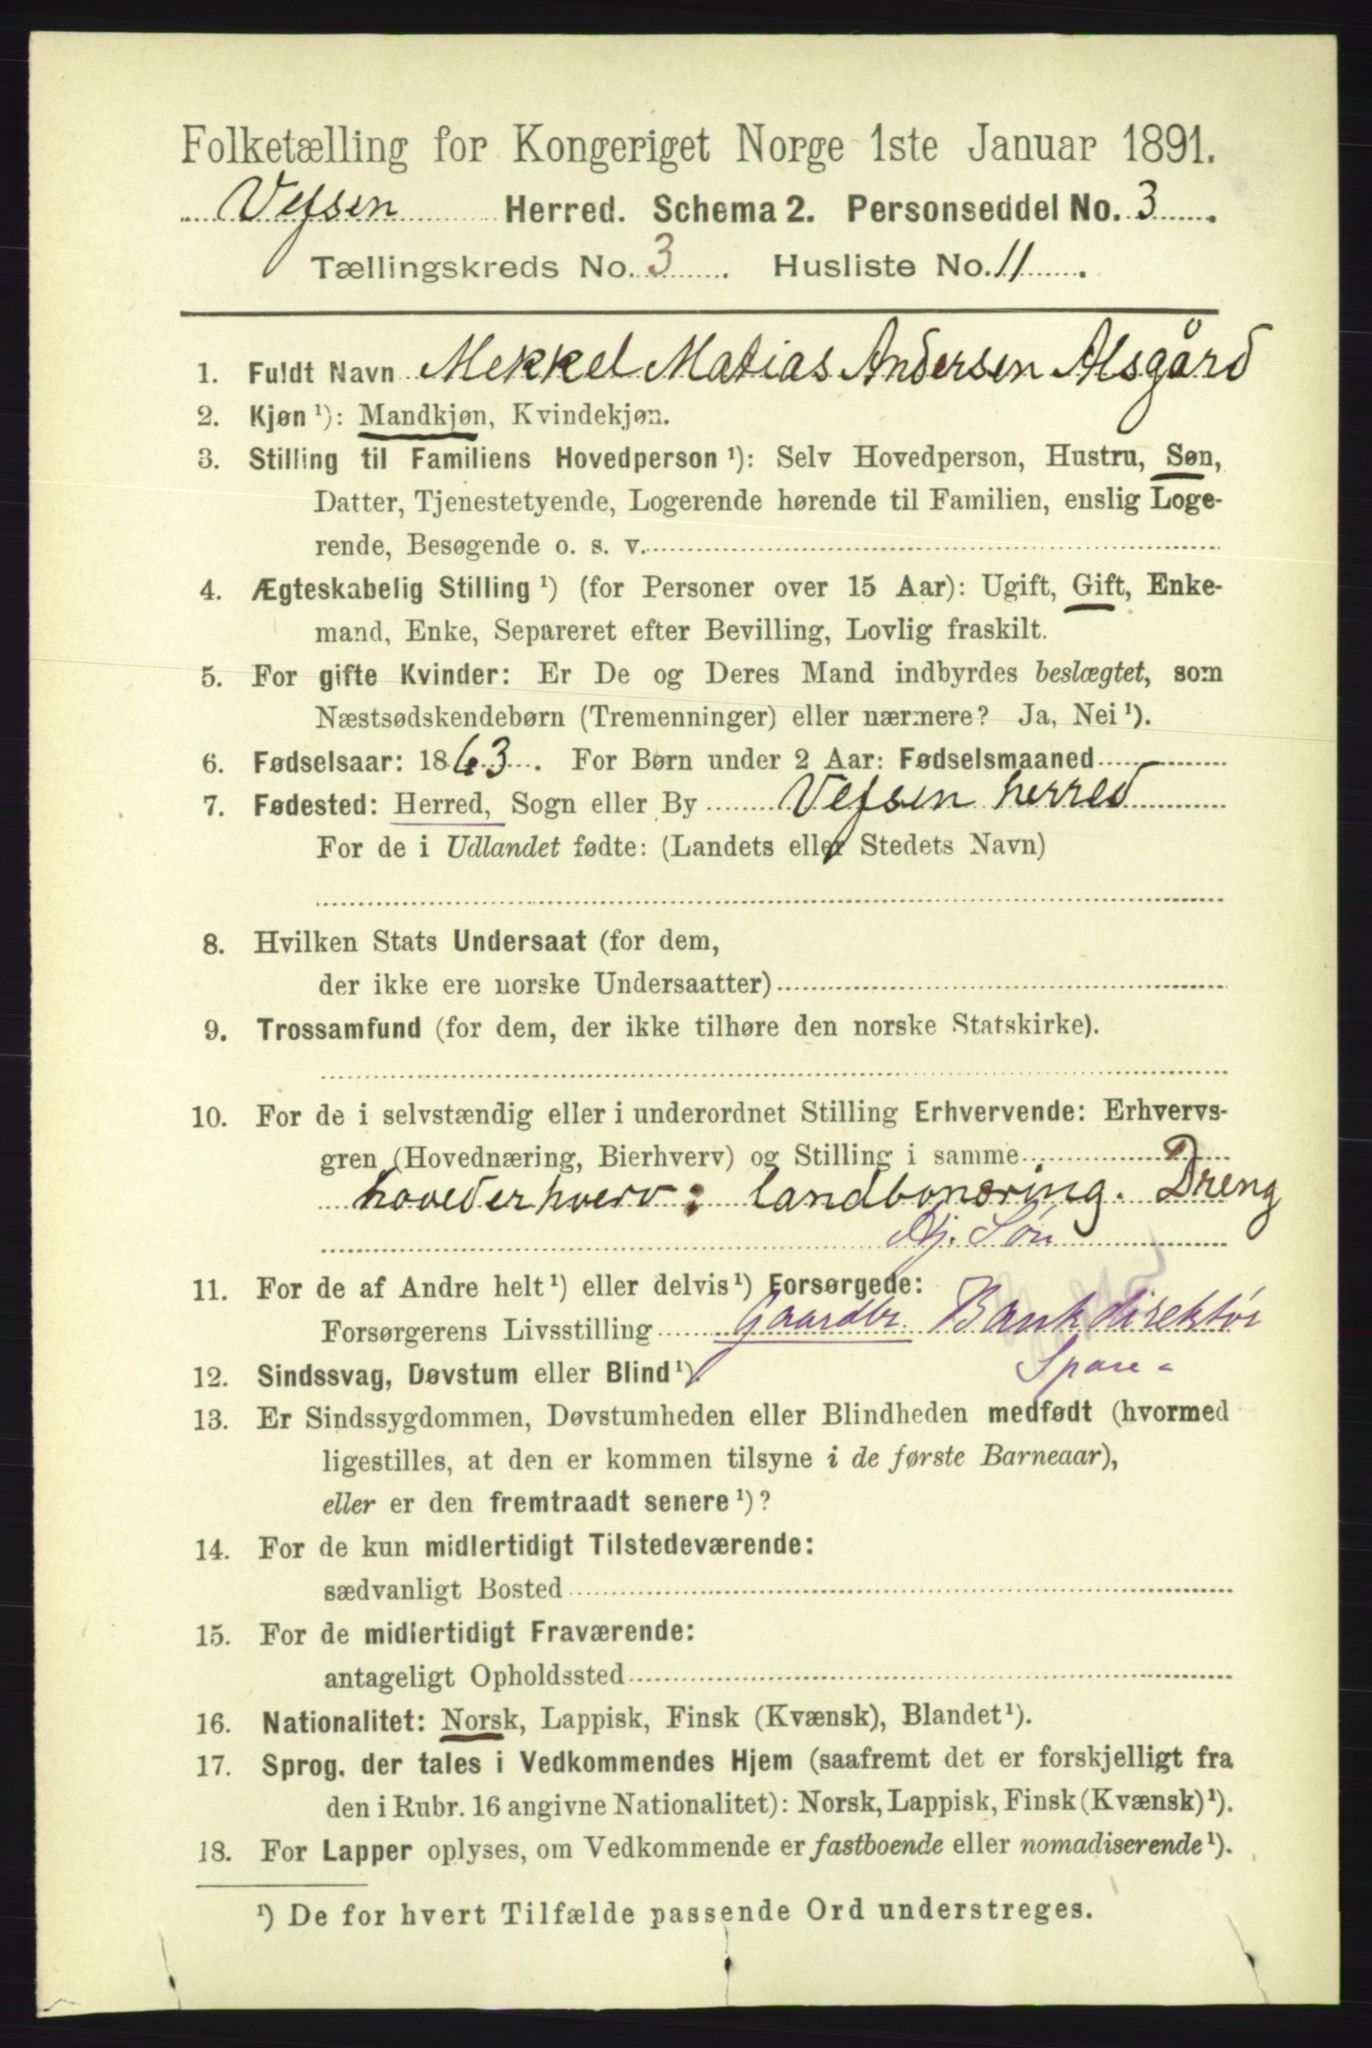 Folketælling for Kongeriget Norge 1ste Januar 1891.
Vefsen Herred. Schema 2. Personseddel No. 3.
Tællingskreds No. 3. Husliste No. 11.
1. Fuldt Navn Mekkel Matias Andersen Alsgård
2. Kjøn ¹): Mandkjøn, Kvindekjøn.
3. Stilling til Familiens Hovedperson ¹): Selv Hovedperson, Hustru, Søn,
Datter, Tjenestetyende, Logerende hørende til Familien, enslig Loge-
rende, Besøgende o. s. v.
4. Ægteskabelig Stilling ¹) (for Personer over 15 Aar): Ugift, Gift, Enke-
mand, Enke, Separeret efter Bevilling, Lovlig fraskilt.
5. For gifte Kvinder: Er De og Deres Mand indbyrdes beslægtet, som
Næstsødskendebørn (Tremenninger) eller nærmere? Ja, Nei ¹).
6. Fødselsaar: 1863. For Børn under 2 Aar: Fødselsmaaned
7. Fødested: Herred, Sogn eller By Vefsen herred
For de i Udlandet fødte: (Landets eller Stedets Navn)
8. Hvilken Stats Undersaat (for dem,
der ikke ere norske Undersaatter)
9. Trossamfund (for dem, der ikke tilhøre den norske Statskirke).
10. For de i selvstændig eller i underordnet Stilling Erhvervende: Erhvervs-
gren (Hovednæring, Bierhverv) og Stilling i samme
hovederhverv: landbonæring. Dreng
Gbr. Søn
11. For de af Andre helt ¹) eller delvis ¹) Forsørgede:
Forsørgerens Livsstilling Gaardbr. Bankdirektør
Spare-
12. Sindssvag, Døvstum eller Blind ¹).
13. Er Sindssygdommen, Døvstumheden eller Blindheden medfødt (hvormed
ligestilles, at den er kommen tilsyne i de første Barneaar),
eller er den fremtraadt senere ¹)?
14. For de kun midlertidigt Tilstedeværende:
sædvanligt Bosted
15. For de midlertidigt Fraværende:
antageligt Opholdssted
16. Nationalitet: Norsk, Lappisk, Finsk (Kvænsk), Blandet ¹).
17. Sprog, der tales i Vedkommendes Hjem (saafremt det er forskjelligt fra
den i Rubr. 16 angivne Nationalitet): Norsk, Lappisk, Finsk (Kvænsk) ¹).
18. For Lapper oplyses, om Vedkommende er fastboende eller nomadiserende ¹).
¹) De for hvert Tilfælde passende Ord understreges.